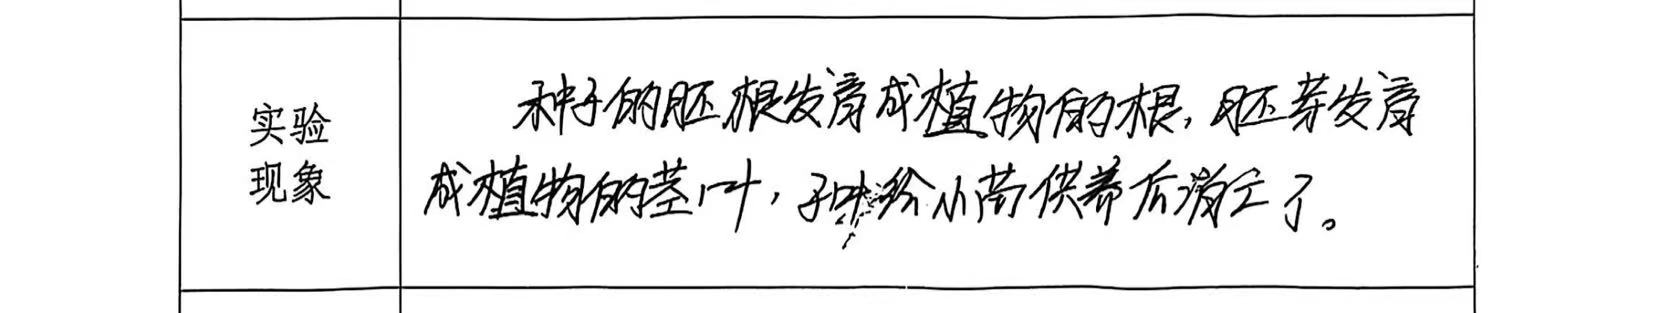 实验
现象
种子的胚根发育成植物的根,胚芽发育
成植物的茎叶,子叶给小苗供养后消亡了。